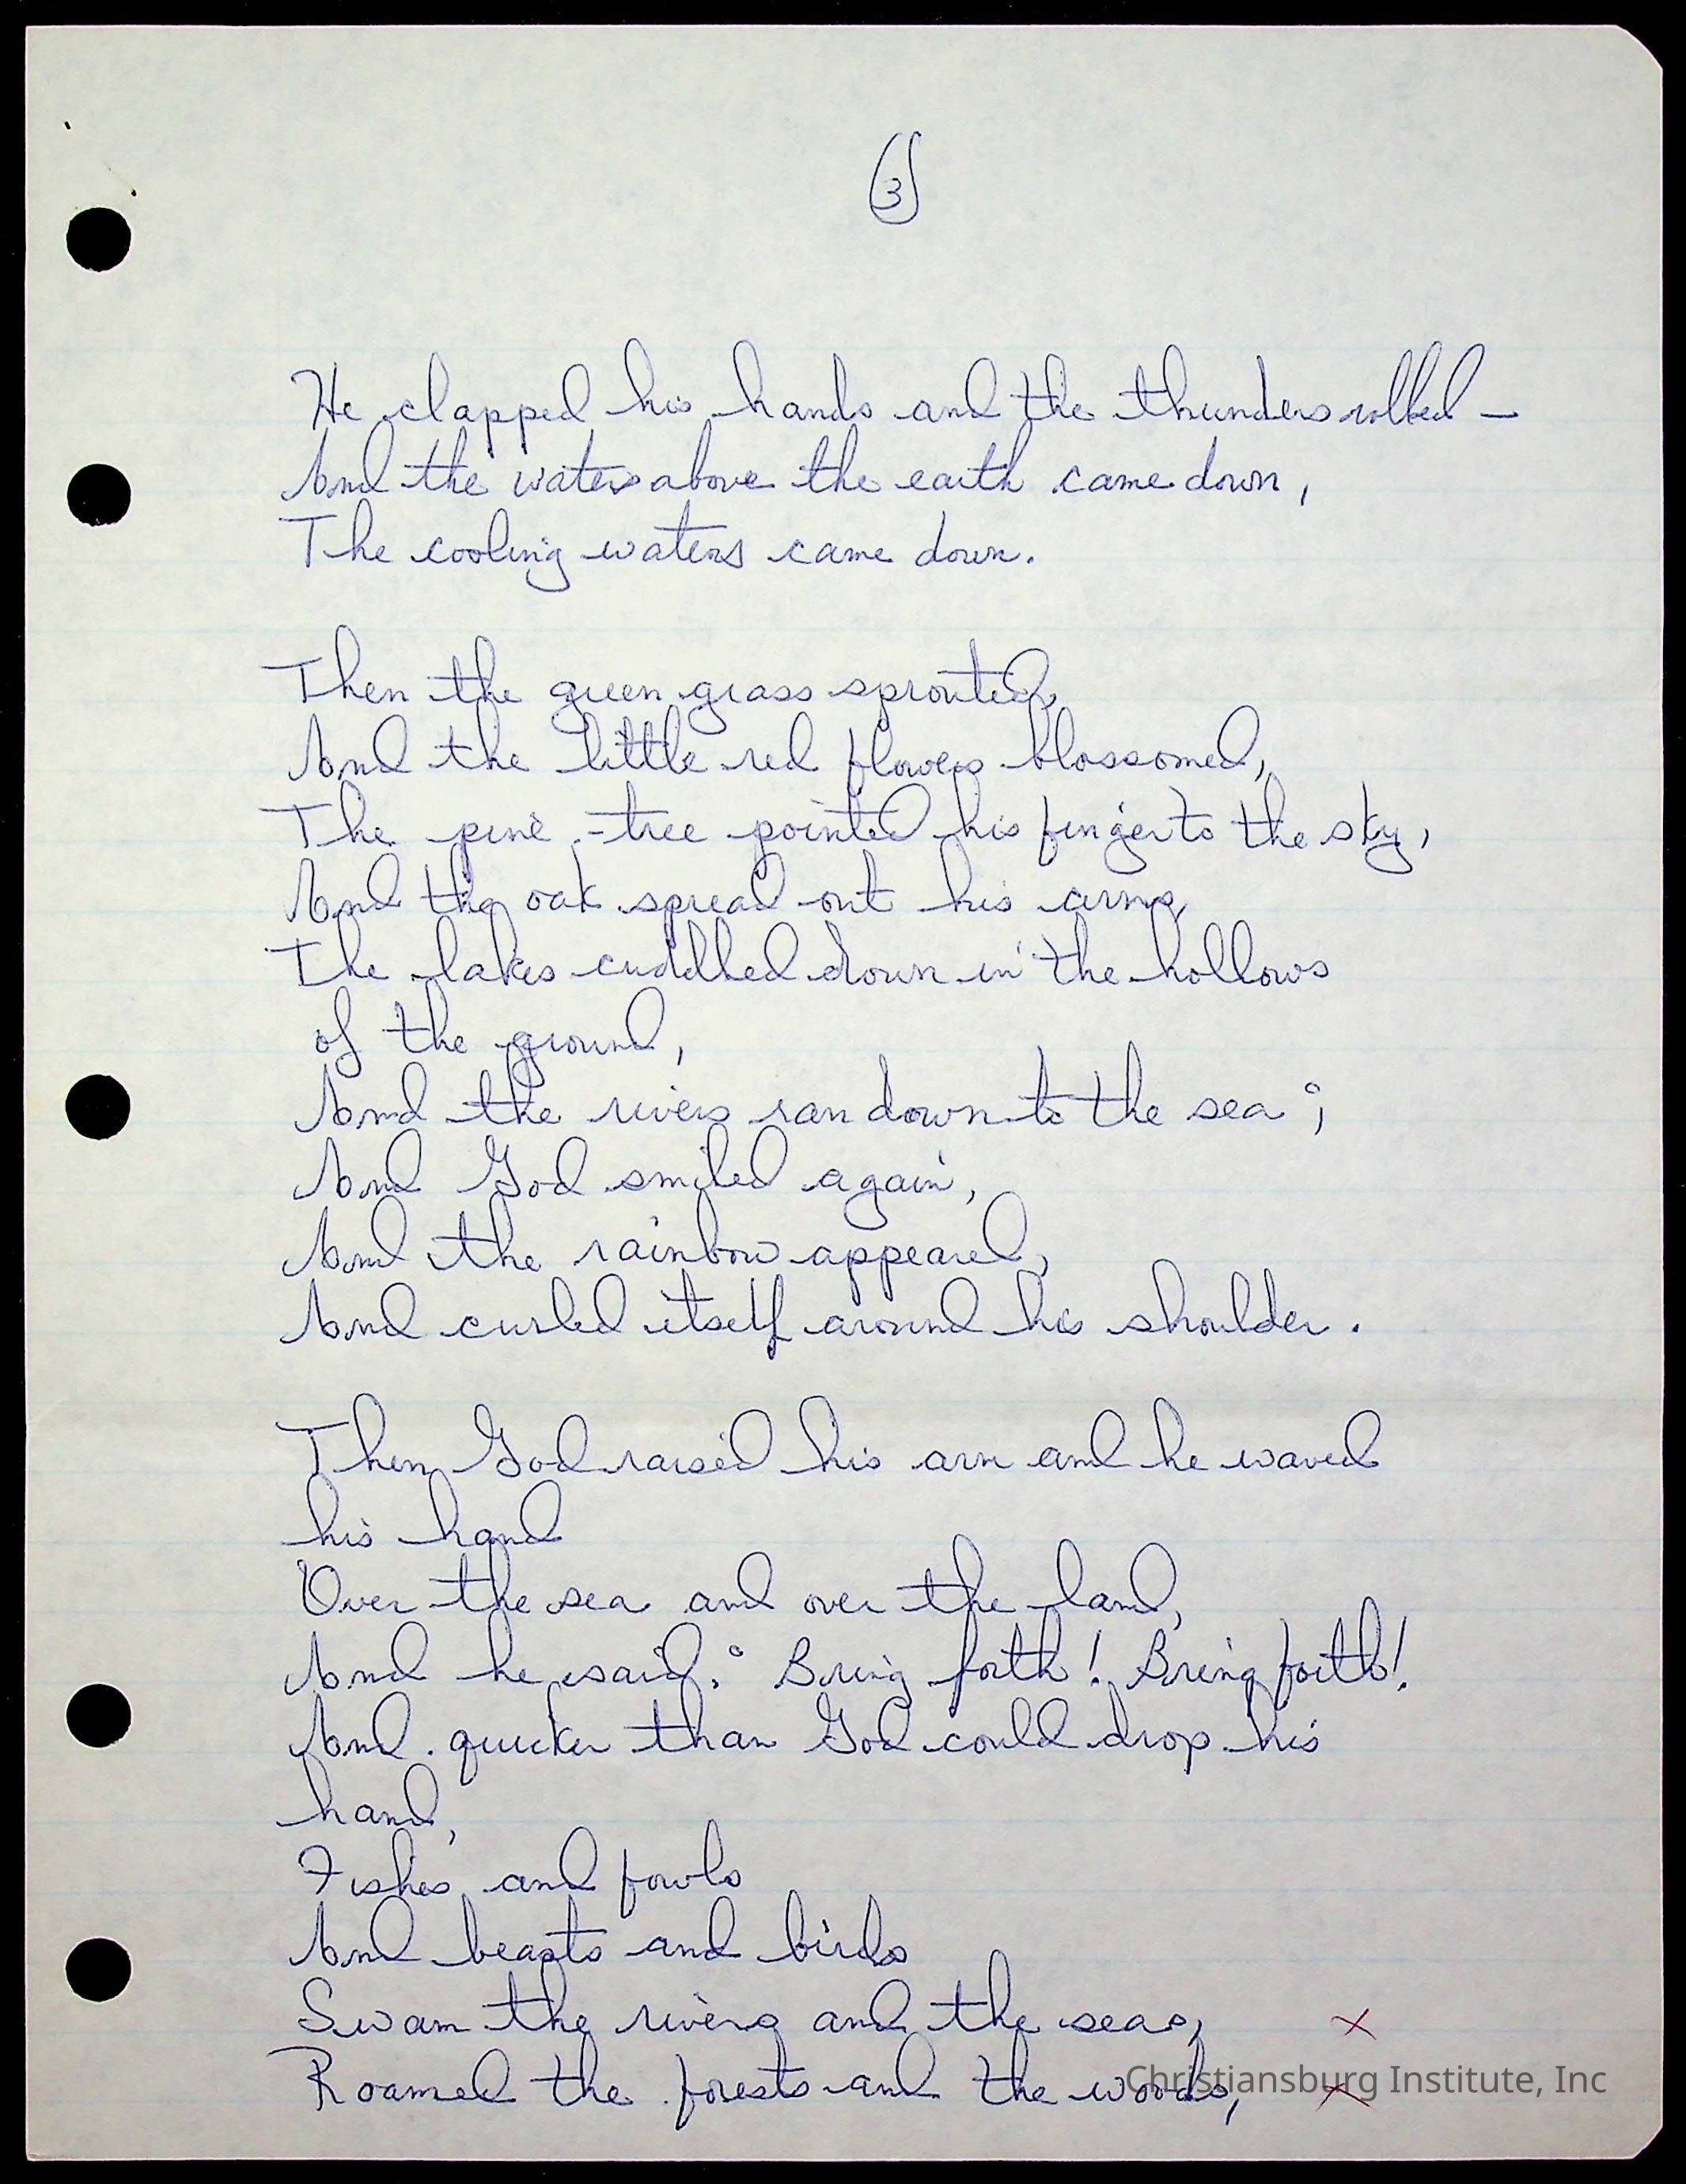 3
He clapped his hands and the thunders rolled —
And the waters above the earth came down,
The cooling waters came down.
Then the green grass sprouted,
And the little red flowers blossomed,
The pine-tree pointed his finger to the sky,
And the oak spread out his arms,
The lakes cuddled down in the hollows
of the ground,
And the rivers ran down to the sea;
And God smiled again,
And the rainbow appeared,
And curled itself around his shoulder.
Then God raised his arm and he waved
his hand
Over the sea and over the land,
And he said: Bring forth! Bring forth!
And quicker than God could drop his
hand,
Fishes and fowls
And beasts and birds
Swam the rivers and the seas, X
Roamed the forests and the woods, X
Christiansburg Institute, Inc